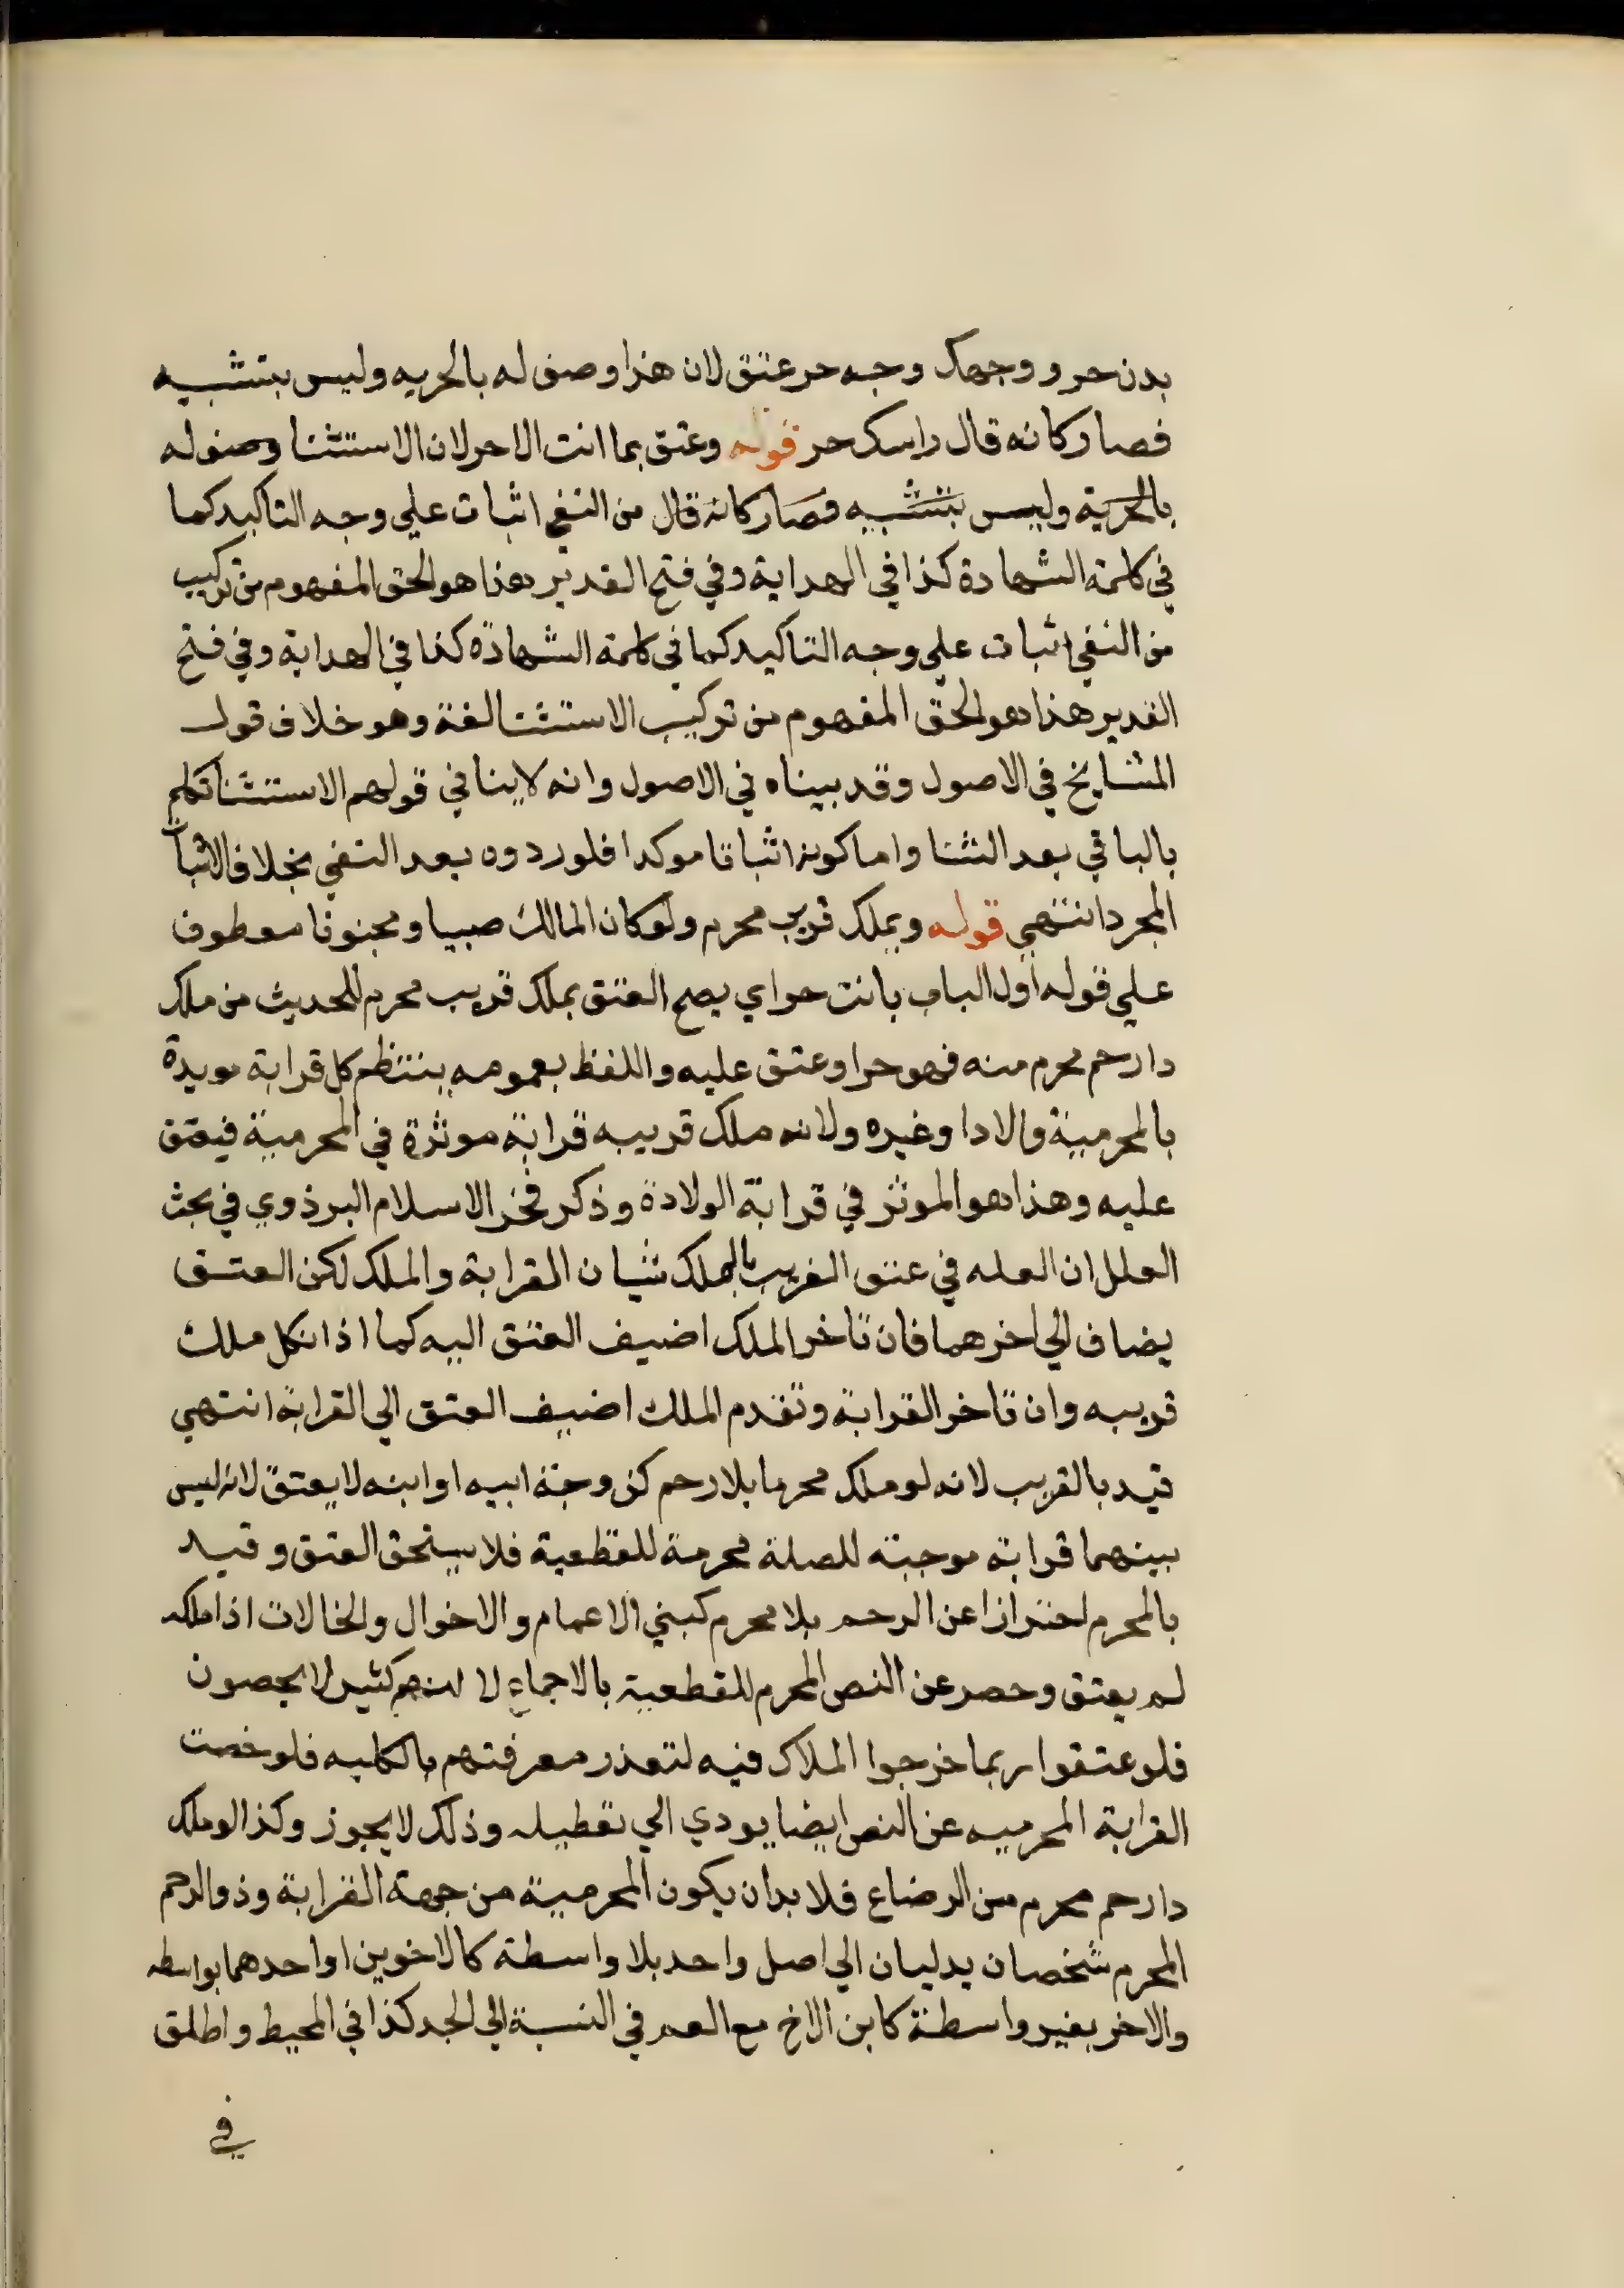 بدن حر و وجهك وجه حر عتق لان هذا وصف له بالحريه وليس بتشبيه
فصار كانه قال راسك حر قوله وعتق بما انت الا حر لان الاستثنا وصف له
بالحرية وليس بتشبيه فصار كانه قال من النفي اثبات علي وجه التاكيد كما
في كلمة الشهادة كذا في الهداية وفي فتح القدير هذا هو الحق المفهوم من تركيب
من النفي اثبات علي وجه التاكيد كما في كلمة الشهادة كذا في الهداية وفي فتح
القدير هذا هو الحق المفهوم من تركيب الاستثنا لغة وهو خلاف قول
المشايخ في الاصول وقد بيناه في الاصول وانه لا ينافي قولهم الاستثنا تكلم
بالباقي بعد الثنا واما كونه اثباتا موكدا فلوروده بعد النفي بخلاف الاثبات
المجرد انتهي قوله وبملك قريب محرم ولو كان المالك صبيا ومجنونا معطوف
علي قوله اول الباب بانت حر اي يصح العتق بملك قريب محرم للحديث من ملك
دا رحم محرم منه فهو حر او عتق عليه واللفظ بعمومه ينتظم كل قرابة مويدة
بالمحرمية والادا وغيره ولانه ملك قريبه قرابة موثرة في المحرمية فيعتق
عليه وهذا هو الموثر في قرابة الولادة وذكر فخر الاسلام البرذوي في بحث
العلل ان العله في عتق القريب بالملك شيان القرابة والملك لكن العتق
يضاف الي اخرهما فان تاخر الملك اضيف العتق اليه كما اذا نكل ملك
قريبه وان تاخر القرابة وتقدم الملك اضيف العتق الي القرابة انتهي
قيد بالقريب لانه لو ملك محرما بلا رحم كزوجة ابيه او ابنه لا يعتق لانه ليس
بينهما قرابة موجبته للصلة محرمة للقطعية فلا يستحق العتق وقيد
بالمحرم احترازا عن الرحم بلا محرم كبني الاعمام والاخوال والخالات اذا ملكه
لم يعتق وحصر عن النص المحرم للقطعية بالاجماع لا لنهم كثير لا يحصون
فلو عتقوا ربما خرجوا الملاك فيه لتعذر معرفتهم بالكليه فلو خصت
القرابة المحرميه عن النص ايضا يودي الي تعطيله وذلك لا يجوز وكذا لو ملك
دا رحم محرم من الرضاع فلا بد ان يكون المحرمية من جهة القرابة وذو الرحم
المحرم شخصان يدليان الي اصل واحد بلا واسطة كالاخوين او احدهما بواسطه
والاخر بغير واسطة كابن الاخ مع العم في النسبة الي الجد كذا في المحيط واطلق
في